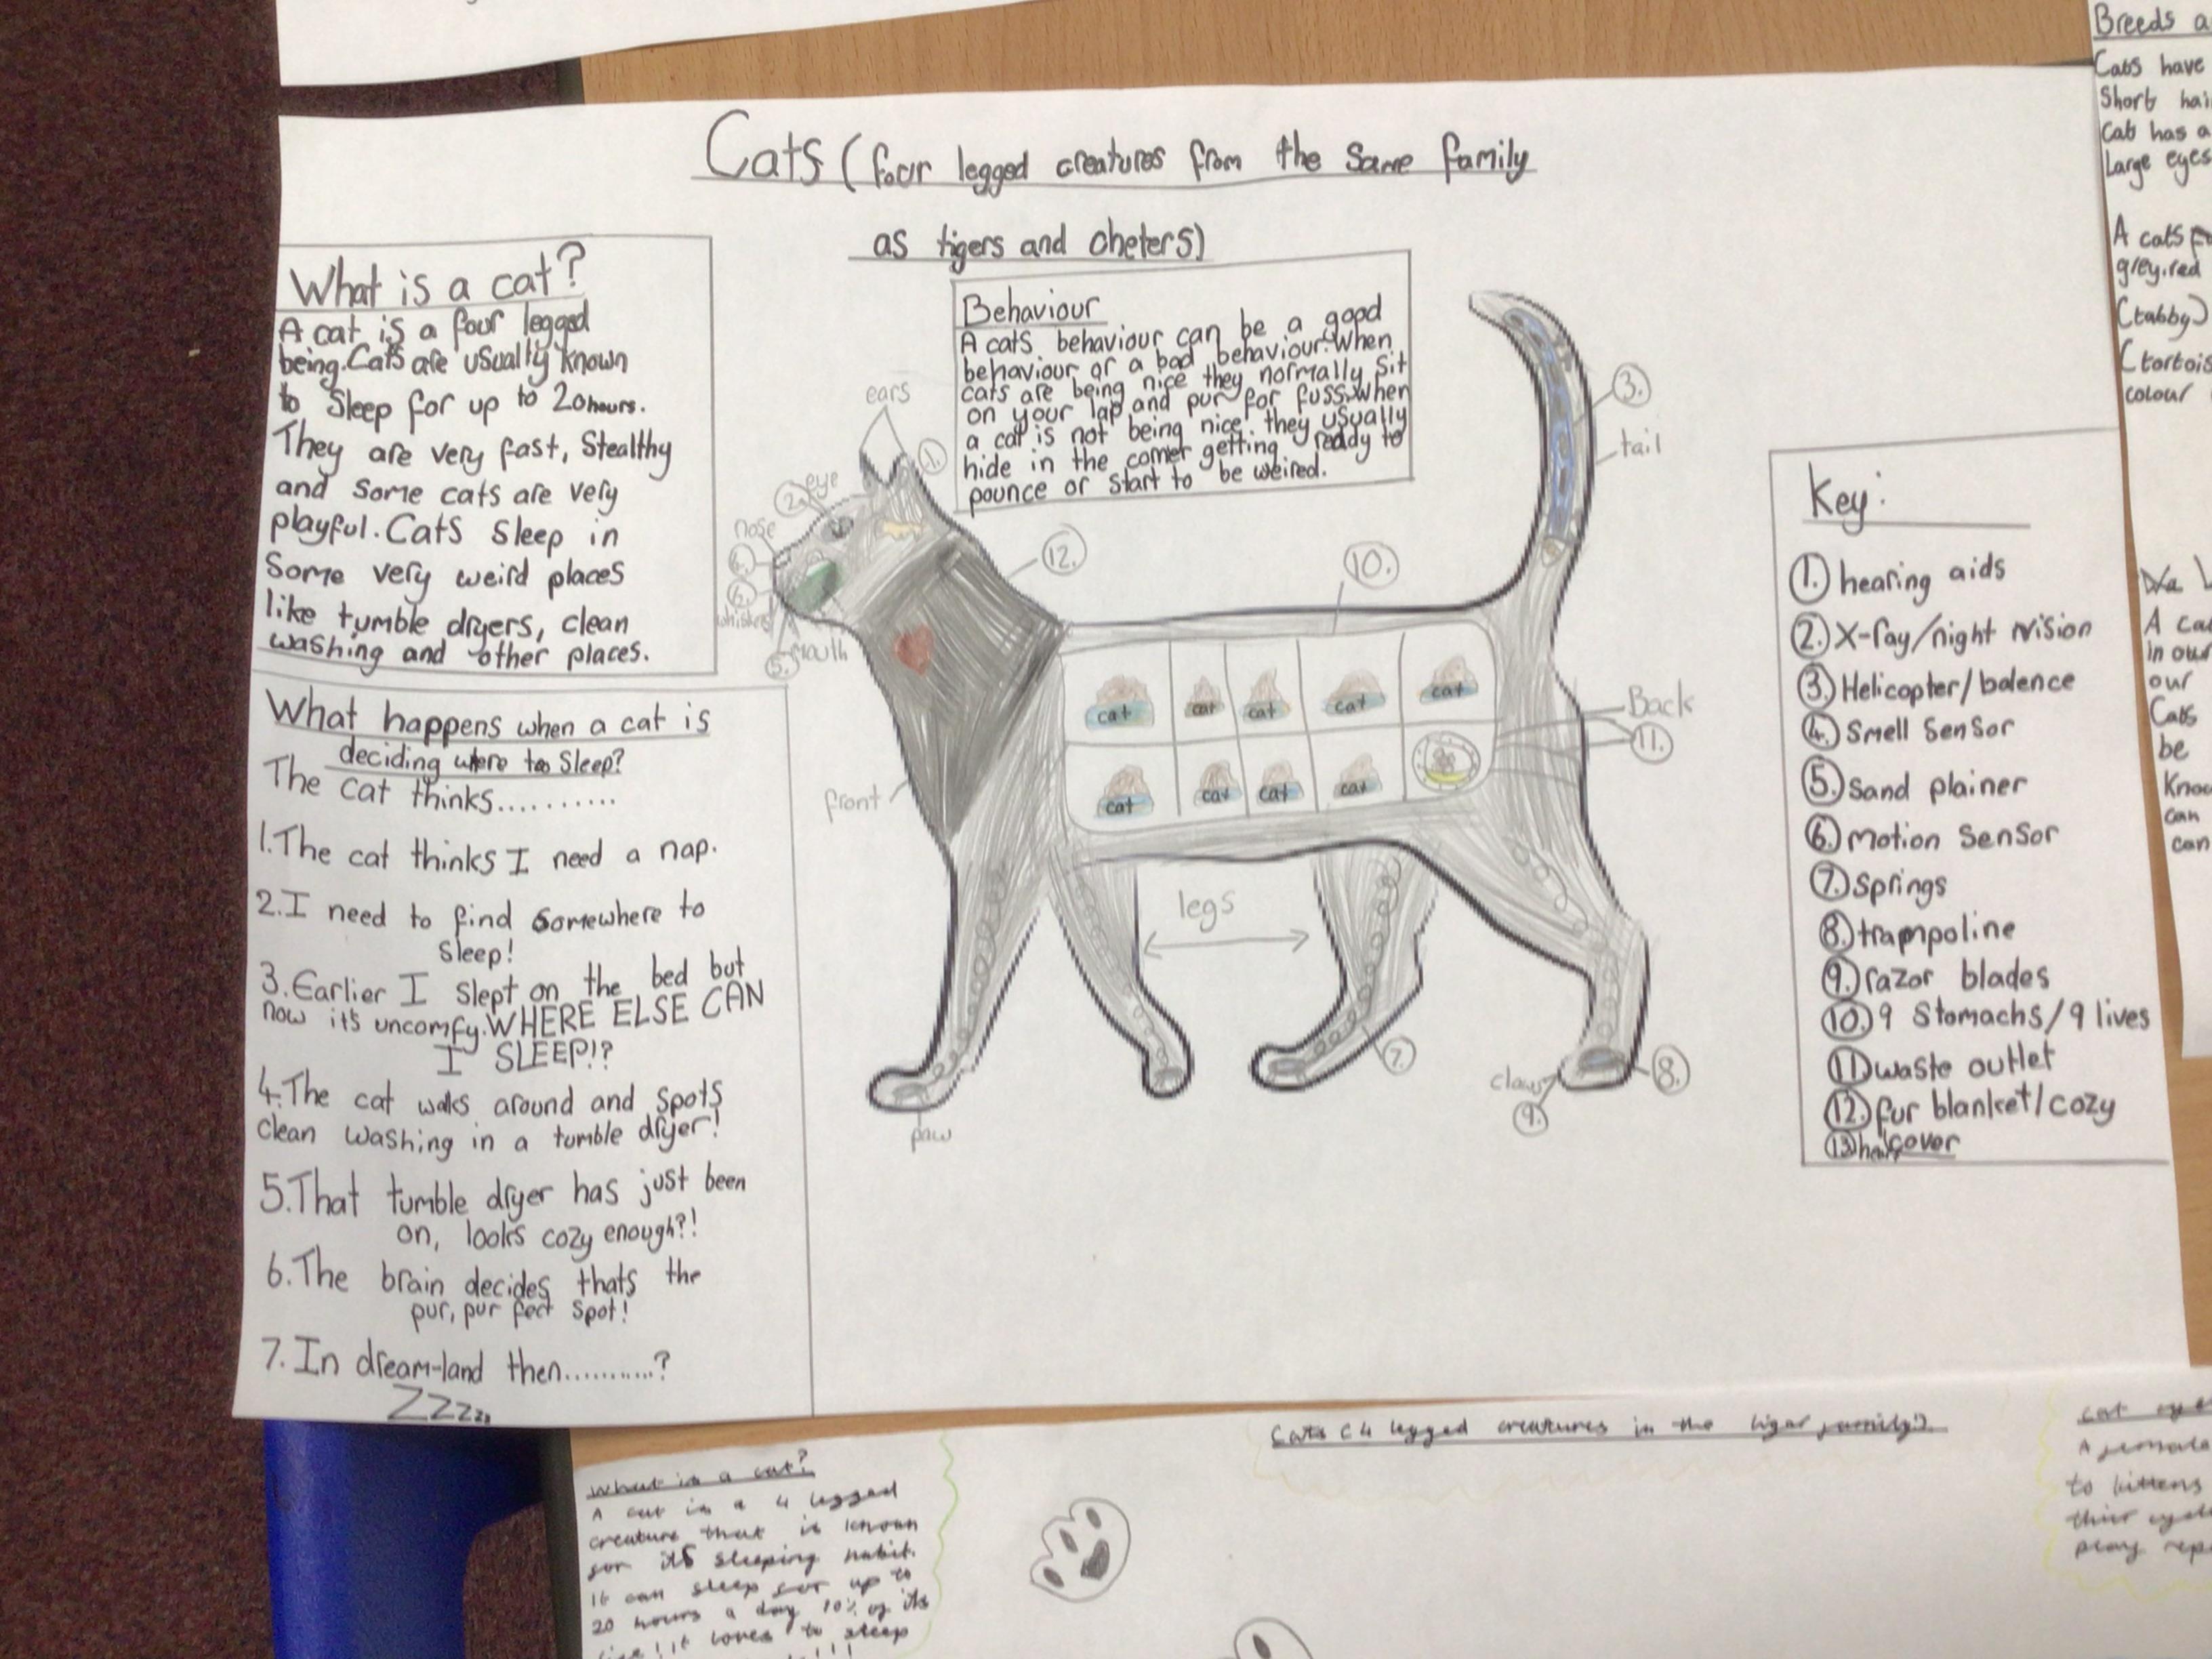 Cats (four legged creatures from the same family
as tigers and cheters)
What is a cat?
A cat is a four legged
being. Cats are usually known
to Sleep for up to 20 hours.
They are very fast, Stealthy
and some cats are very
playful. Cats sleep in
Some very weird places
like tumble dryers, clean
washing and other places.
What happens when a cat is
deciding where to Sleep?
The cat thinks..........
1. The cat thinks I need a nap.
2. I need to find somewhere to
Sleep!
3. Earlier I slept on the bed but
now it's uncomfy. WHERE ELSE CAN
I SLEEP!?
4. The cat walks around and spots
clean washing in a tumble dryer!
5. That tumble dryer has just been
on, looks cozy enough?!
6. The brain decides thats the
pur, pur fect spot!
7. In dream-land then...........?
Zzzzz
Behaviour
A cats behaviour can be a good
behaviour or a bad behaviour. When
cats are being nice they normally sit
on your lap and pur for fuss. When
a cat is not being nice they usually
hide in the corner getting ready to
pounce or start to be weired.
ears
1.
eye
2.
nose
4.
6.
whiskers
5.
mouth
12.
10.
3.
tail
cat cat cat cat cat
cat cat cat cat
Back
11.
front
legs
7.
claws
9.
8.
paw
Key:
1. hearing aids
2. X-ray/night vision
3. Helicopter/balence
4. Smell sensor
5. Sand plainer
6. Motion sensor
7. Springs
8. trampoline
9. razor blades
10. 9 Stomachs/9 lives
11. waste outlet
12. fur blanket/cozy
cover
13.
Breeds a
Cats have
Short hai
Cat has a
Large eyes
A cats
grey, red
(tabby)
(tortois
colour
A cat
in our
our
Cats
be
Know
can
can
Cats (4 legged creatures in the tiger family!)
What is a cat?
A cat is a 4 legged
creature that is known
for its sleeping habit.
It can sleep for up to
20 hours a day 10% of its
life! it loves to sleep
cat
A female
to kittens
their cycle